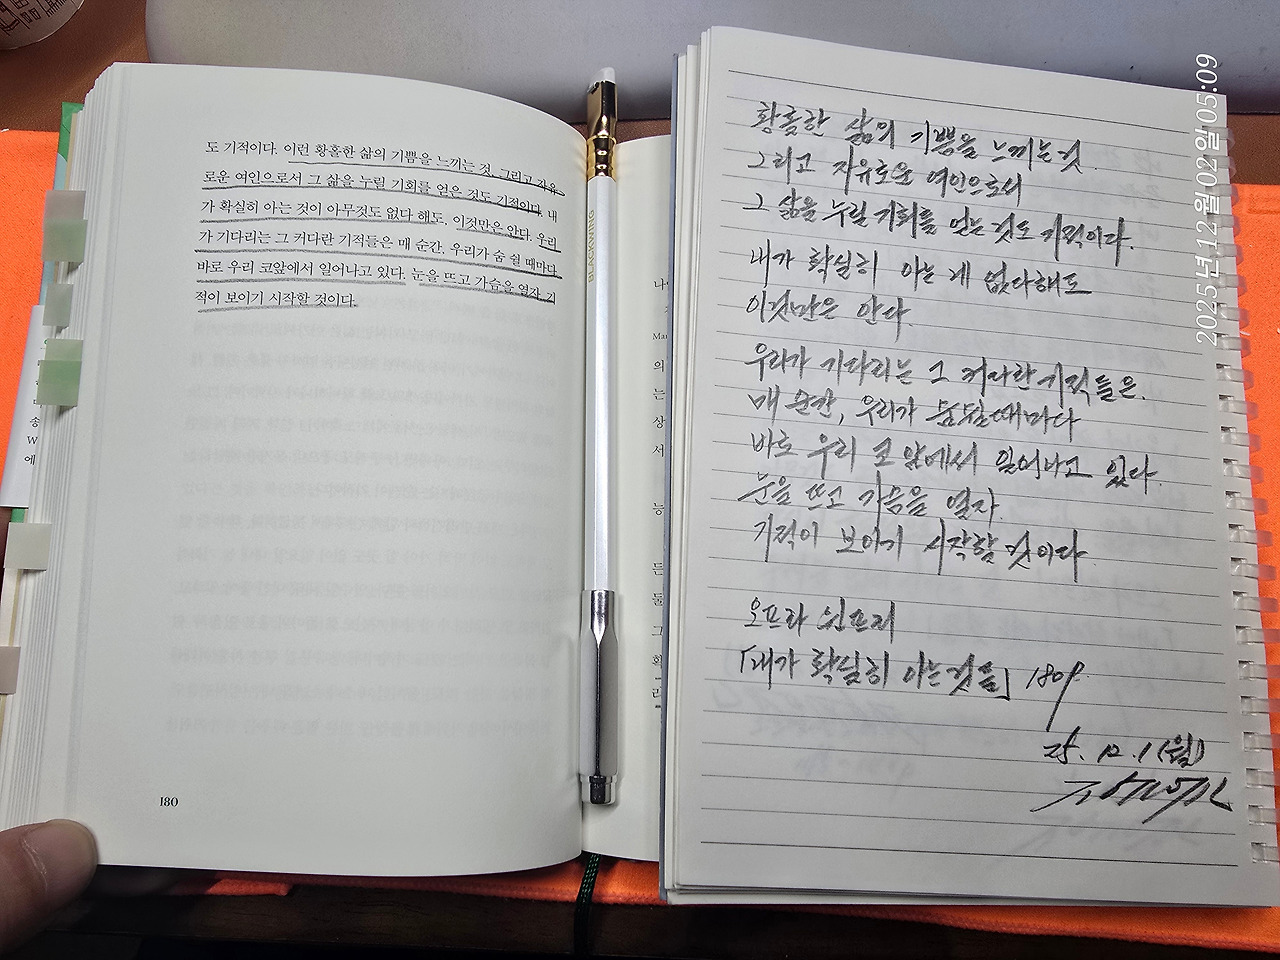 도 기적이다. 이런 황홀한 삶의 기쁨을 느끼는 것, 그리고 자유
로운 여인으로서 그 삶을 누릴 기회를 얻은 것도 기적이다. 내
가 확실히 아는 것이 아무것도 없다 해도, 이것만은 안다. 우리
가 기다리는 그 커다란 기적들은 매 순간, 우리가 숨 쉴 때마다
바로 우리 코앞에서 일어나고 있다. 눈을 뜨고 가슴을 열자. 기
적이 보이기 시작할 것이다.
180
BLACKWING
나
Mar
의
는
상
서
능
든
둘
그
확
리
송
W
에
황홀한 삶의 기쁨을 느끼는 것.
그리고 자유로운 여인으로서
그 삶을 누릴 기회를 얻는 것도 기적이다.
내가 확실히 아는 게 없다해도
이것만은 안다.
우리가 기다리는 그 커다란 기적들은.
매 순간, 우리가 숨쉴때마다
바로 우리 코 앞에서 일어나고 있다.
눈을 뜨고 가슴을 열자.
기적이 보이기 시작할 것이다.
오프라 윈프리
「내가 확실히 아는것들」 180p.
25. 12. 1 (월)
2025년 12월 02일 05:09